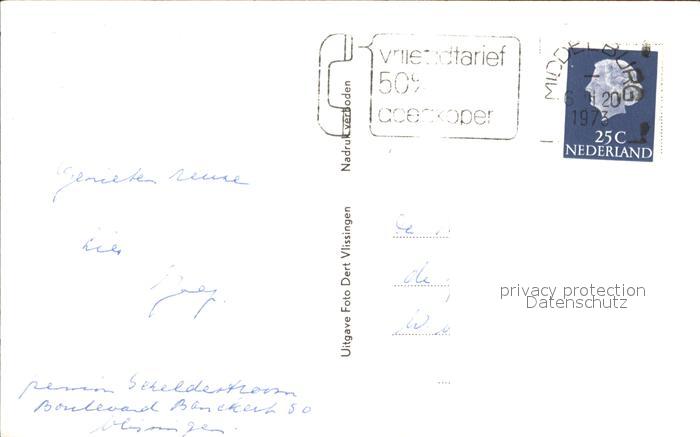 vriendtarief
50%
goedkoper
MIDDELBURG
20
1973
25C
NEDERLAND
Nadruk verboden
Uitgave Foto Dert Vlissingen
Genieten reuze
hier
pension Scheldestroom
Boulevard Banckert 50
Vlissingen.
de
privacy protection
Datenschutz